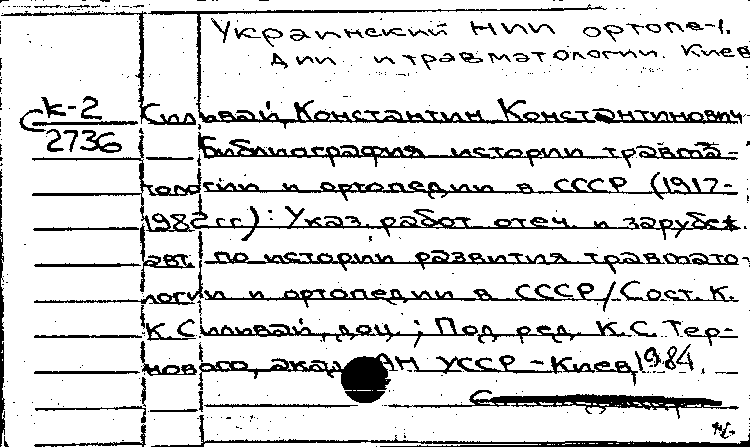 Украинский НИИ ортопе-1.
дии и травматологии. Киев
К-2
С
2736
Силивай, Константин Константинович
Библиография истории травма-
тологии и ортопедии в СССР (1917-
1982 гг): Указ. работ отеч. и зарубеж.
авт. по истории развития травмато-
логии и ортопедии в СССР/Сост. К.
К. Силивай, доц.; Под ред. К.С. Тер-
нового, акад. АН УССР - Киев, 1984.